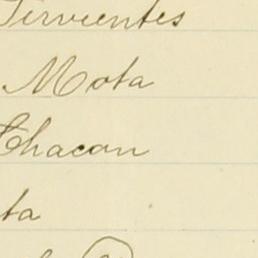 Sirvientes
Mota
Chacon
ta